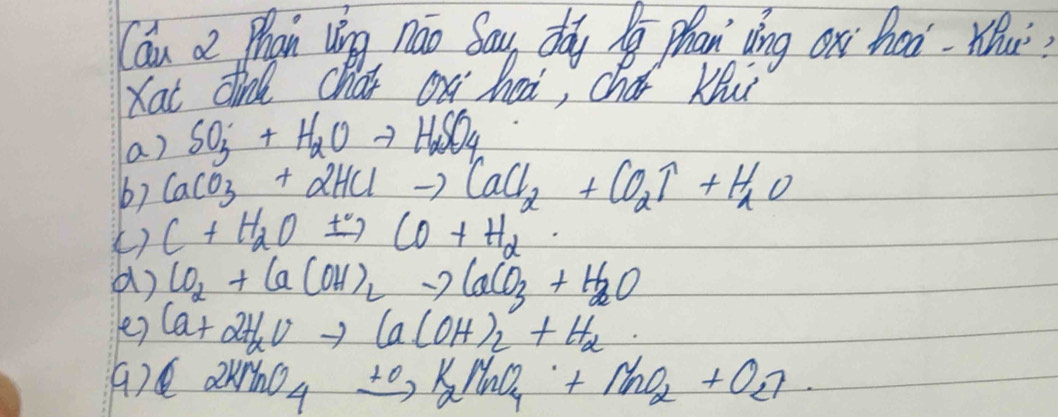 Câu 2 Phản ứng nào sau đây là phản ứng oxi hoá - khử?
Xác định chất oxi hoá, chất khử
a) SO₃ + H₂O → H₂SO₄
b) CaCO₃ + 2HCl → CaCl₂ + CO₂↑ + H₂O
c) C + H₂O →(t°) CO + H₂
d) CO₂ + Ca(OH)₂ → CaCO₃ + H₂O
e) Ca + 2H₂O → Ca(OH)₂ + H₂
g) 2KMnO₄ →(t°) K₂MnO₄ + MnO₂ + O₂↑